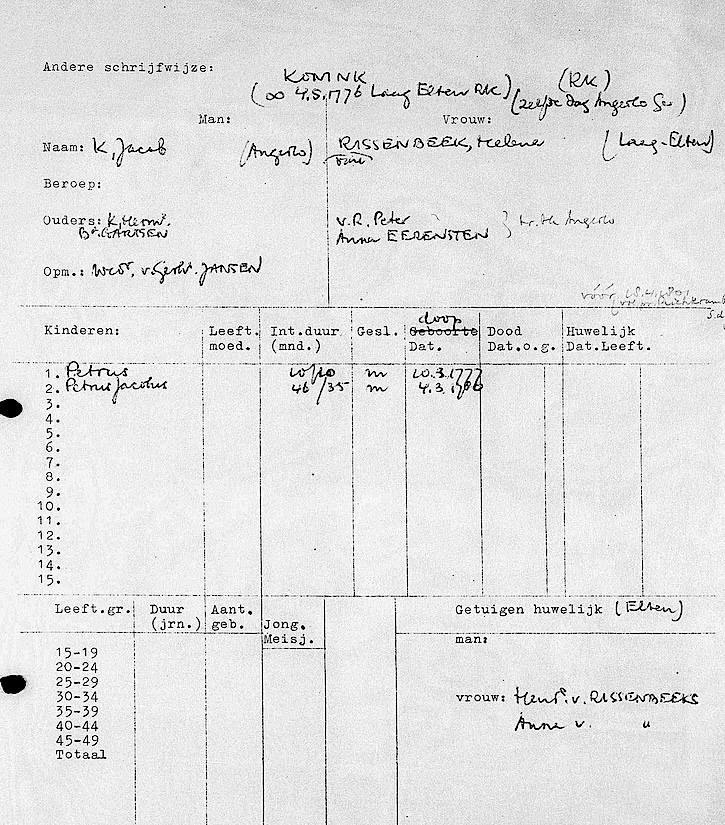 Andere schrijfwijze: KONINK (RK)
(∞ 4.5.1776 Laag Elten RK) (zelfde dag Angerlo Ge)
Man: Vrouw:
Naam: K, Jacob (Angerlo) RISSENBEEK, Helena (Laag-Elten)
van
Beroep:
Ouders: K, Herm. v. R. Peter } tr. te Angerlo
GARTSEN Anna EERENSTEN
Opm.: Wedr. v. Gerh. JANSEN
vóór
doop
Kinderen: Leeft. Int.duur Gesl. Geboorte Dood Huwelijk
moed. (mnd.) Dat. Dat.o.g. Dat.Leeft.
1. Petrus 10/10 m 10.3.1777
2. Petrus Jacobus 46/35 m 4.3.
3.
4.
5.
6.
7.
8.
9.
10.
11.
12.
13.
14.
15.
Leeft.gr. Duur Aant. Getuigen huwelijk (Elten)
(jrn.) geb. Jong.
Meisj. man:
15-19
20-24
25-29
30-34 vrouw: Henr. v. RISSENBEEKS
35-39
40-44 Anna v. "
45-49
Totaal